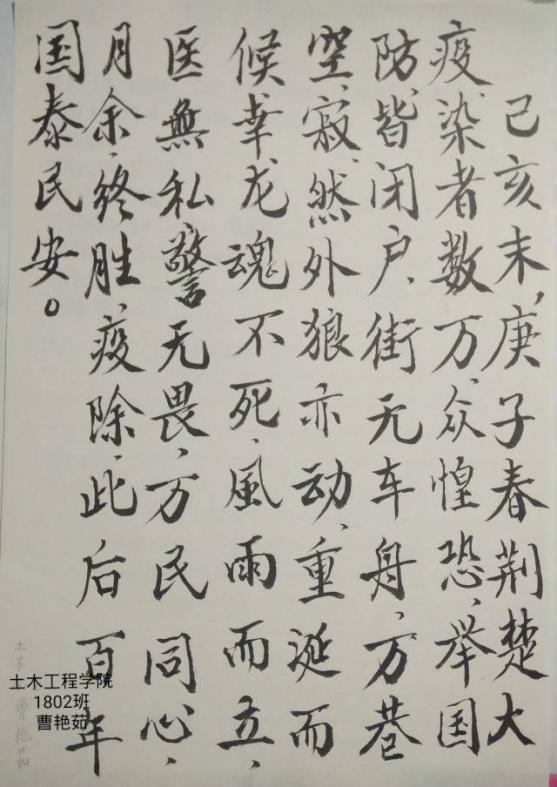 己亥末,庚子春荆楚大
疫、染者数万、众惶恐、举国
防、皆闭户、街无车舟,万巷
空、寂、然外狼亦动、重诞而
候、幸龙魂不死、風雨而立、
医無私警无畏、万民同心、
月余、终胜、疫除、此后百年
国泰民安。
土木工程学院
1802班
曹艳茹